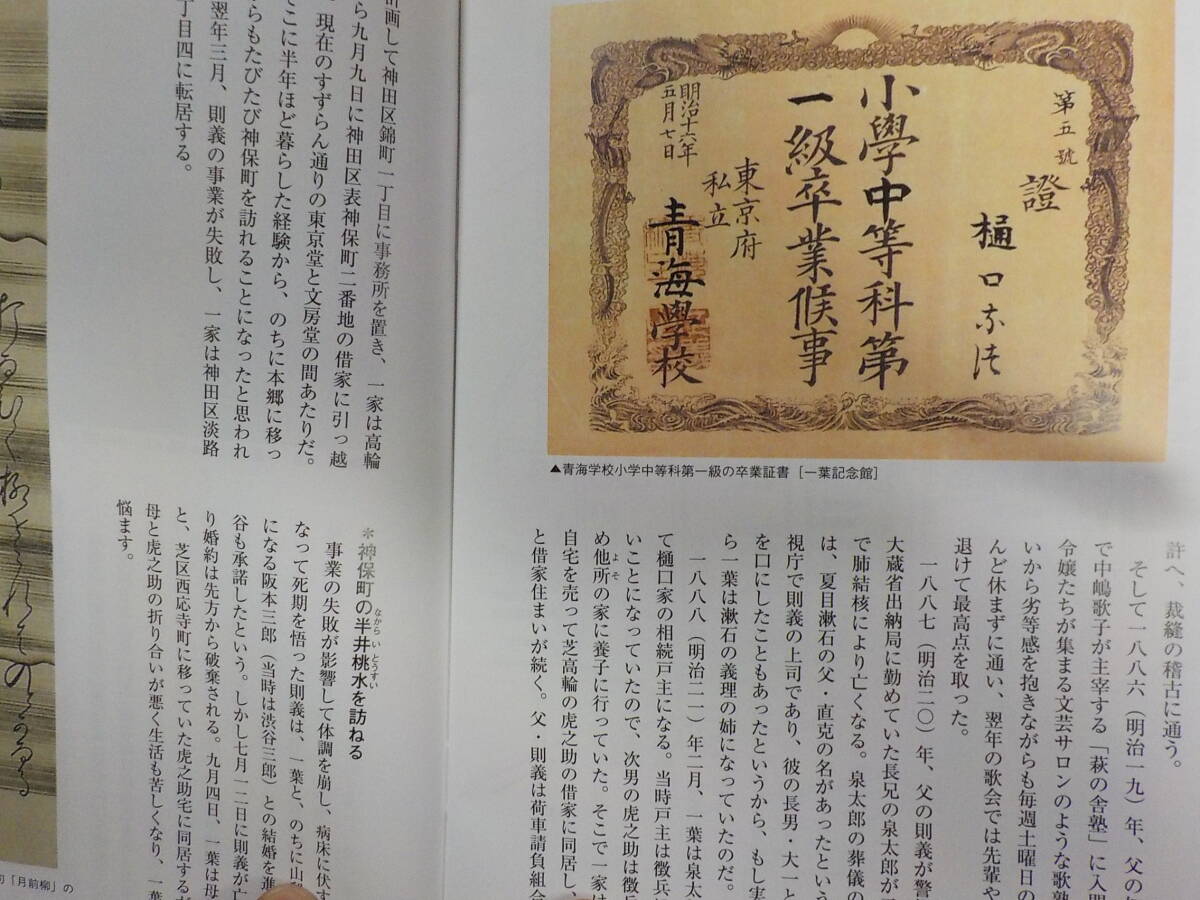 第五號
證
樋口奈津
小學中等科第
一級卒業候事
東京府
私立
青海學校
明治十六年
五月七日
▲青海学校小学中等科第一級の卒業証書[一葉記念館]
許へ、裁縫の稽古に通う。
そして一八八六(明治一九)年、父の
で中嶋歌子が主宰する「萩の舎塾」に入門
令嬢たちが集まる文芸サロンのような歌塾
いから劣等感を抱きながらも毎週土曜日の
んど休まずに通い、翌年の歌会では先輩や
退けて最高点を取った。
一八八七(明治二〇)年、父の則義が警
大蔵省出納局に勤めていた長兄の泉太郎が
で肺結核により亡くなる。泉太郎の葬儀の
は、夏目漱石の父・直克の名があったという
視庁で則義の上司であり、彼の長男・大一と
を口にしたこともあったというから、もし実
ら一葉は漱石の義理の姉になっていたのだ。
一八八八(明治二一)年二月、一葉は泉太
て樋口家の相続戸主になる。当時戸主は徴兵
いことになっていたので、次男の虎之助は徴兵
め他所の家に養子に行っていた。そこで一家は
自宅を売って芝高輪の虎之助の借家に同居し、
と借家住まいが続く。父・則義は荷車請負組合
計画して神田区錦町一丁目に事務所を置き、一家は高輪
ら九月九日に神田区表神保町二番地の借家に引っ越
現在のすずらん通りの東京堂と文房堂の間あたりだ。
こに半年ほど暮らした経験から、のちに本郷に移っ
らもたびたび神保町を訪れることになったと思われ
翌年三月、則義の事業が失敗し、一家は神田区淡路
丁目四に転居する。
*神保町の半井桃水を訪ねる
事業の失敗が影響して体調を崩し、病床に伏す
なって死期を悟った則義は、一葉と、のちに山
になる阪本三郎(当時は渋谷三郎)との結婚を進
谷も承諾したという。しかし七月一二日に則義が亡
り婚約は先方から破棄される。九月四日、一葉は母
と、芝区西応寺町に移っていた虎之助宅に同居するが
母と虎之助の折り合いが悪く生活も苦しくなり、一葉
悩ます。
「月前柳」の